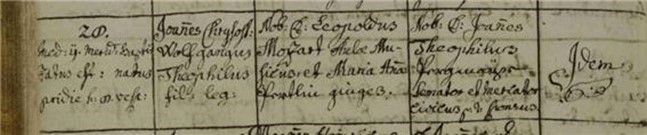 28.
med: 11 merid: baptiz
zatus est: natus
pridie h: 8 vesp:
Joan̄es Chrysost:
Wolfgangus
Theophilus
fil: leg:
Nob: D: Leopoldus
Mozart Aulæ Mu-
sicus et Maria An̄a
Pertlin giuges.
Nob: D: Joan̄es
Theophilus
Pergmayr
Senator et Mercator
civicus p: t: sponsus
Idem